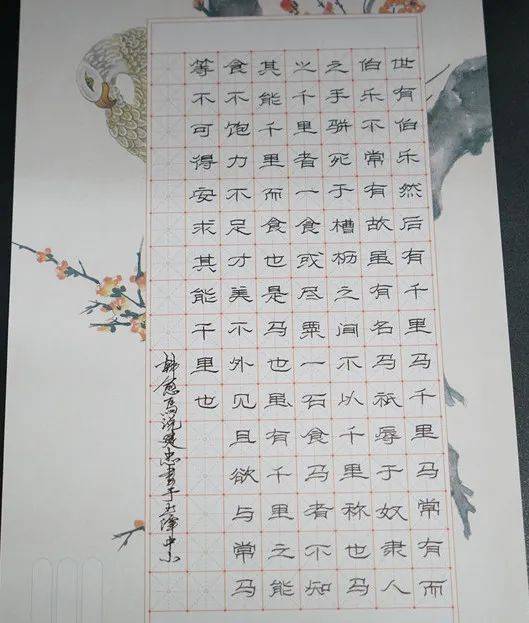 世有伯乐然后有千里马千里马常有而
伯乐不常有故虽有名马祇辱于奴隶人
之手骈死于槽枥之间不以千里称也马
之千里者一食或尽粟一石食马者不知
其能千里而食也是马也虽有千里之能
食不饱力不足才美不外见且欲与常马
等不可得安求其能千里也
韩愈马说忠書于中小